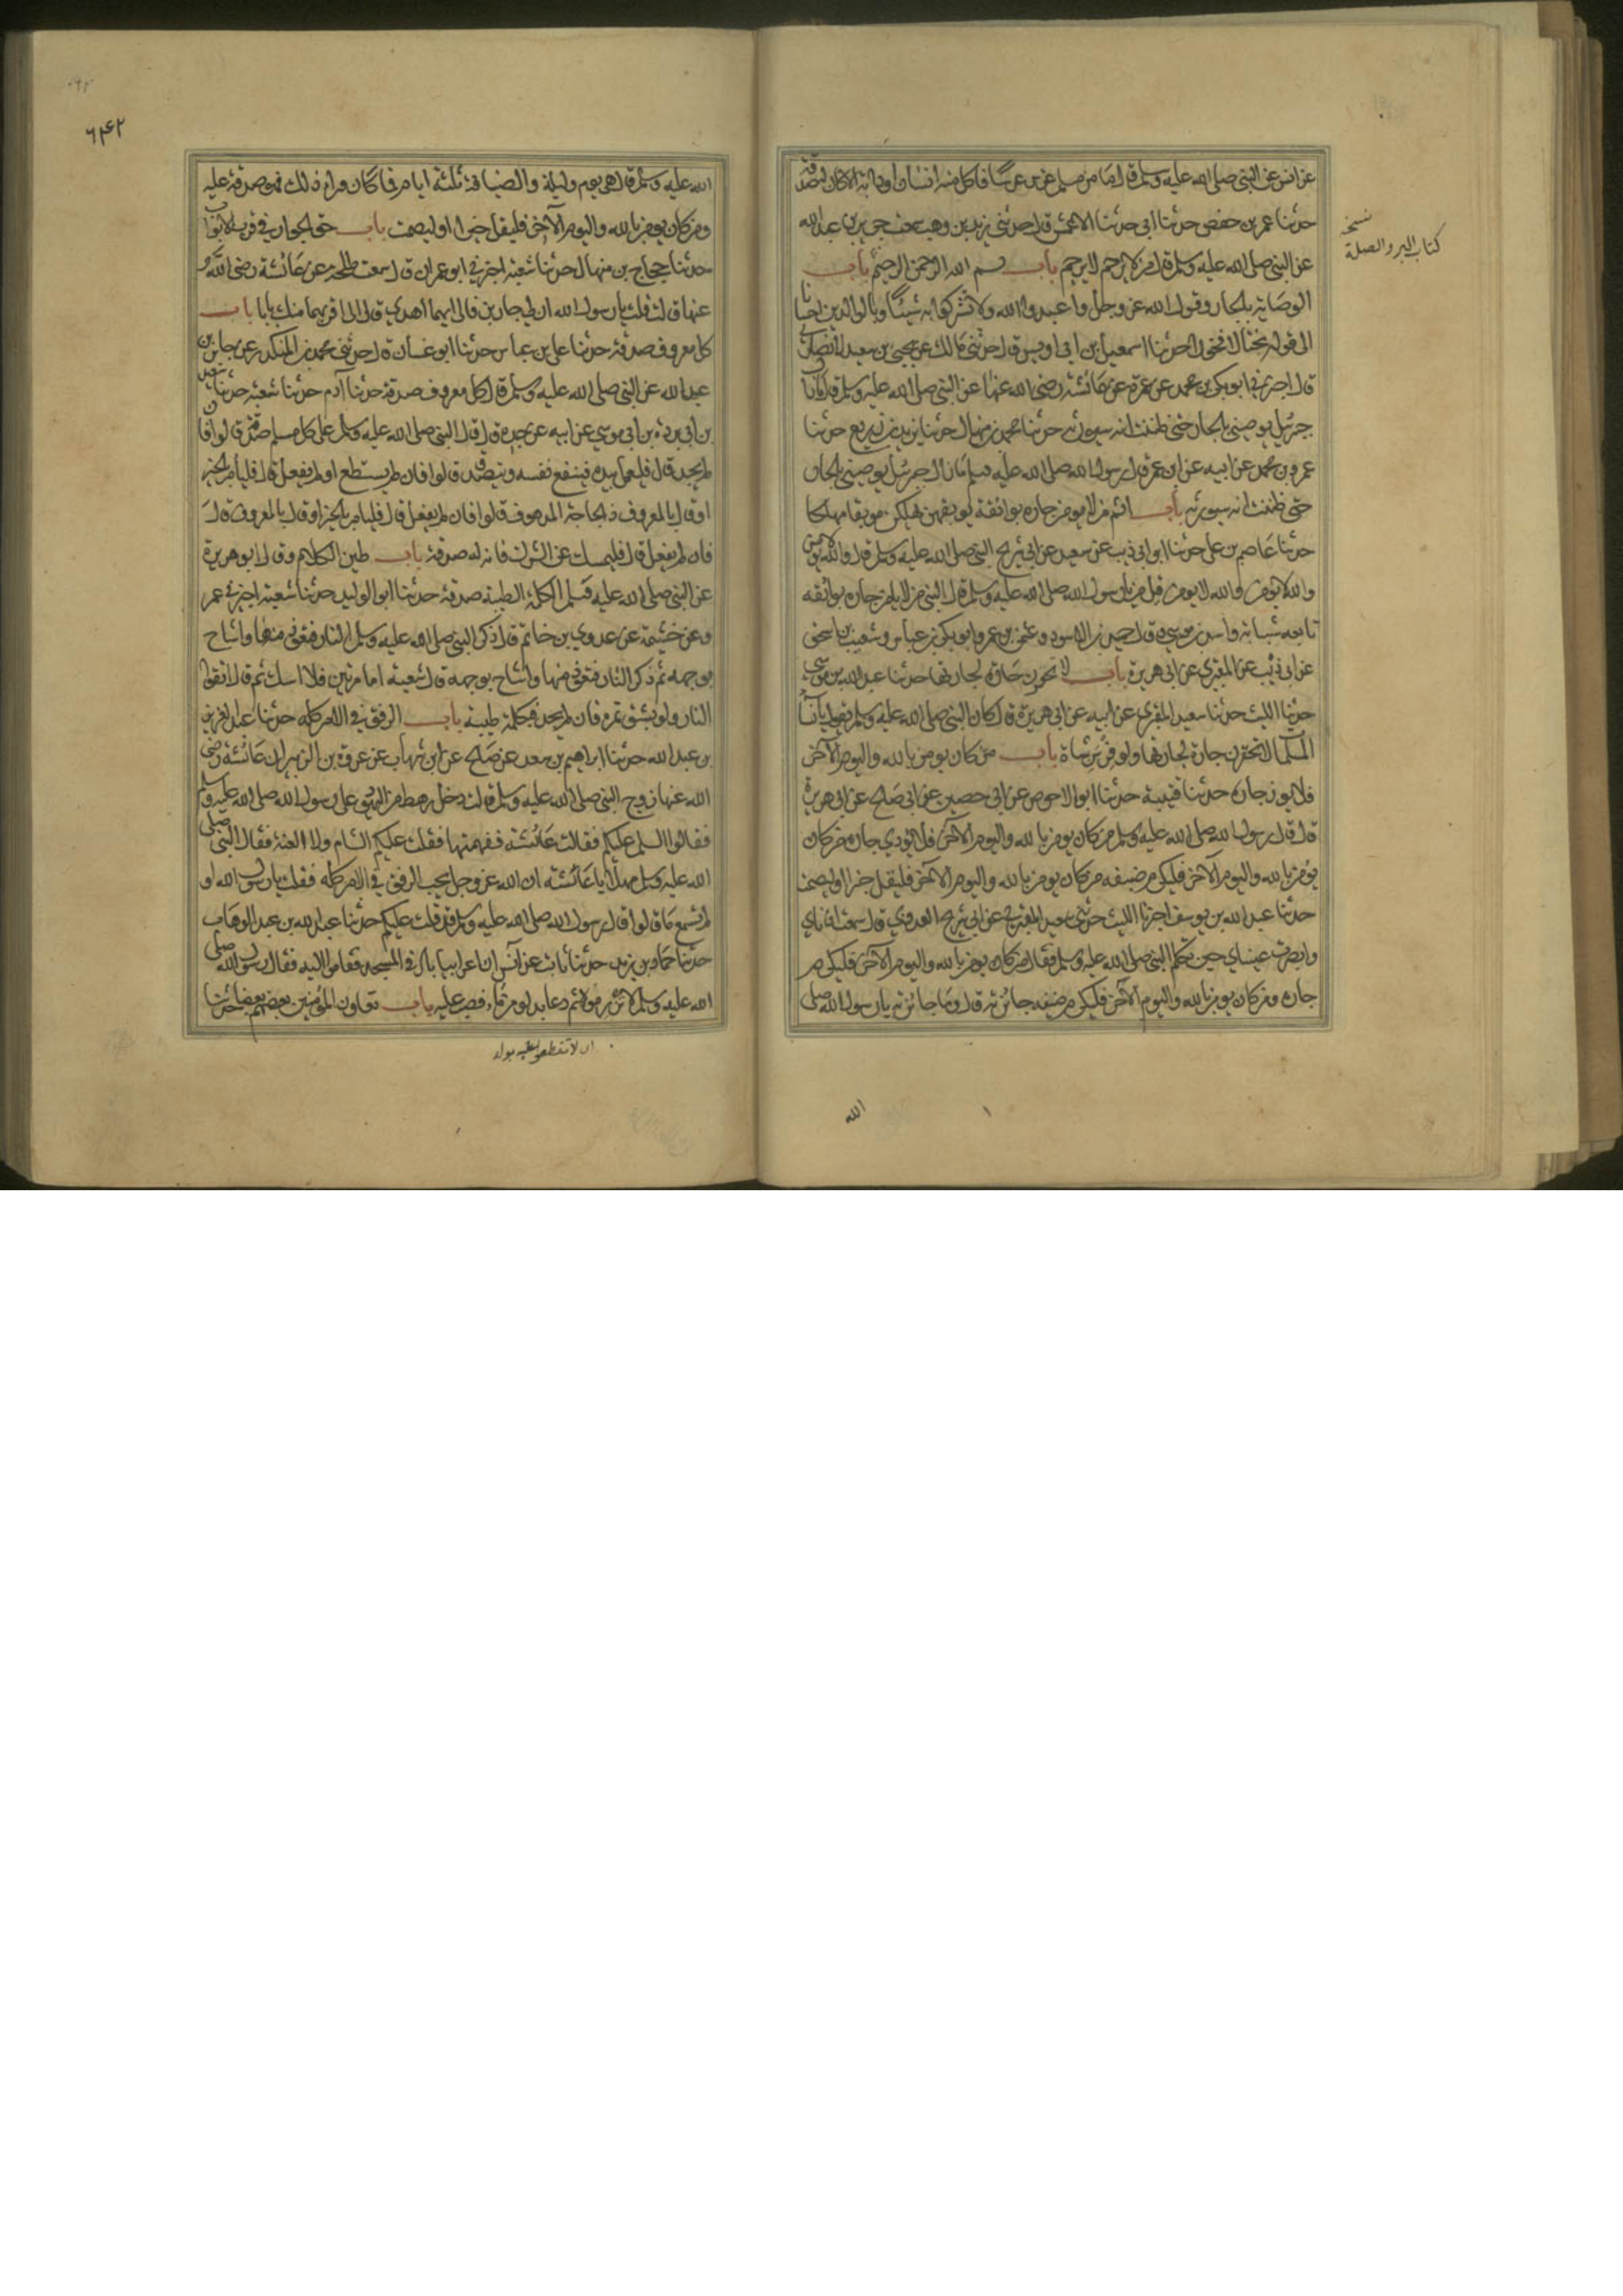 عن انس عن النبي صلى الله عليه وسلم قال ما من مسلم غرس غرسا فاكل منه انسان او دابة الا كان له صدقة
حدثنا عمر بن حفص حدثنا ابي حدثنا الاعمش قال حدثني زيد بن وهب سمعت جرير بن عبد الله
عن النبي صلى الله عليه وسلم قال من لا يرحم لا يرحم باب بسم الله الرحمن الرحيم باب
الوصاية بالجار وقول الله عز وجل واعبدوا الله ولا تشركوا به شيئا وبالوالدين احسانا
الى قوله مختالا فخورا حدثنا اسمعيل بن ابي اويس قال حدثني مالك عن يحيى بن سعيد الانصاري
قال اخبرني ابو بكر بن محمد عن عمرة عن عائشة رضي الله عنها عن النبي صلى الله عليه وسلم قال
جبرئيل يوصيني بالجار حتى ظننت انه سيورثه حدثنا محمد بن منهال حدثنا يزيد بن زريع حدثنا
عمر بن محمد عن ابيه عن ابن عمر قال رسول الله صلى الله عليه وسلم ما زال جبرئيل يوصيني بالجار
حتى ظننت انه سيورثه باب اثم من لا يومن جاره بوائقه يوبقهن يهلكهن موبقا مهلكا
حدثنا عاصم بن علي حدثنا ابن ابي ذيب عن سعيد عن ابي شريح النبي صلى الله عليه وسلم قال والله لا يومن
والله لا يومن والله لا يومن قيل من يا رسول الله صلى الله عليه وسلم قال النبي من لا يامن جاره بوائقه
تابعه شبابة واسد بن موسى وقال حميد بن الاسود وعثمن بن عمر وابو بكر بن عياش وشعيب بن اسحق
عن ابن ذئب عن المقبري عن ابي هريرة باب لا تحقرن جارة لجارتها حدثنا عبد الله بن موسى
حدثنا الليث حدثنا سعيد المقبري عن ابيه عن ابي هريرة قال كان النبي صلى الله عليه وسلم يقول يا نساء
المسلمات لا تحقرن جارة لجارتها ولو فرسن شاة باب من كان يومن بالله واليوم الآخر
فلا يوذ جاره حدثنا قتيبة حدثنا ابو الاحوص عن ابي حصين عن ابي صلح عن ابي هريرة
قال قال رسول الله صلى الله عليه وسلم من كان يومن بالله واليوم الآخر فلا يوذي جاره من كان
يومن بالله واليوم الآخر فليكرم ضيفه من كان يومن بالله واليوم الآخر فليقل خيرا او ليصمت
حدثنا عبد الله بن يوسف اخبرنا الليث حدثني سعيد المقبري عن ابي شريح العدوي قال سمعت اذناي
وابصرت عيناي حين تكلم النبي صلى الله عليه وسلم فقال من كان يومن بالله واليوم الآخر فليكرم
جاره ومن كان يومن بالله واليوم الآخر فليكرم ضيفه جائزته قال وما جائزته يا رسول الله صلى
نسخه
كتاب البر والصلة
الله
١
٦٢٤٢
الله عليه وسلم قال يوم وليلة والضيافة ثلثة ايام فما كان وراء ذلك فهو صدقة عليه
ومن كان يومن بالله واليوم الآخر فليقل خيرا او ليصمت باب حق الجوار في قرب الابواب
حدثنا حجاج بن منهال حدثنا شعبة اخبرني ابو عمران قال سمعت طلحة عن عائشة رضي الله
عنها قالت قلت يا رسول الله ان لي جارين فالى ايهما اهدي قال الى اقربهما منك بابا باب
كل معروف صدقة حدثنا علي بن عياش حدثنا ابو غسان قال حدثني محمد بن المنكدر عن جابر بن
عبد الله عن النبي صلى الله عليه وسلم قال كل معروف صدقة حدثنا آدم حدثنا شعبة حدثنا سعيد
بن ابي بردة بن ابي موسى عن ابيه عن جده قال قال النبي صلى الله عليه وسلم على كل مسلم صدقة قالوا فان
لم يجد قال فليعمل بيده فينفع نفسه ويتصدق قالوا فان لم يستطع او لم يفعل قال فليامر بالخير
او قال بالمعروف ذا الحاجة الملهوف قالوا فان لم يفعل قال فليامر بالخير او قال بالمعروف قال
فان لم يفعل قال فليمسك عن الشر فانه له صدقة باب طيب الكلام وقال ابو هريرة
عن النبي صلى الله عليه وسلم الكلمة الطيبة صدقة حدثنا ابو الوليد حدثنا شعبة اخبرني عمر
وعن خيثمة عن عدي بن حاتم قال ذكر النبي صلى الله عليه وسلم النار فتعوذ منها واشاح
بوجهه ثم ذكر النار فتعوذ منها واشاح بوجهه قال شعبة اما مرتين فلا اشك ثم قال اتقوا
النار ولو بشق تمرة فان لم يجد فبكلمة طيبة باب الرفق في الامر كله حدثنا عبد العزيز
بن عبد الله حدثنا ابراهيم بن سعد عن صلح عن ابن شهاب عن عروة بن الزبير ان عائشة رضي
الله عنها زوج النبي صلى الله عليه وسلم قالت دخل رهط من اليهود على رسول الله صلى الله عليه وسلم
فقالوا السام عليكم فقالت عائشة ففهمتها فقلت عليكم السام واللعنة فقال النبي صلى
الله عليه وسلم مهلا يا عائشة ان الله عز وجل يحب الرفق في الامر كله فقلت يا رسول الله او
لم تسمع ما قالوا قال رسول الله صلى الله عليه وسلم قد قلت عليكم حدثنا عبد الله بن عبد الوهاب
حدثنا حماد بن زيد حدثنا ثابت عن انس ان اعرابيا بال في المسجد فقاموا اليه فقال رسول الله صلى
الله عليه وسلم لا تزرموه ثم دعا بدلو من ماء فصب عليه باب تعاون المؤمنين بعضهم بعضا حدثنا
اى لا تقطعوا عليه بوله